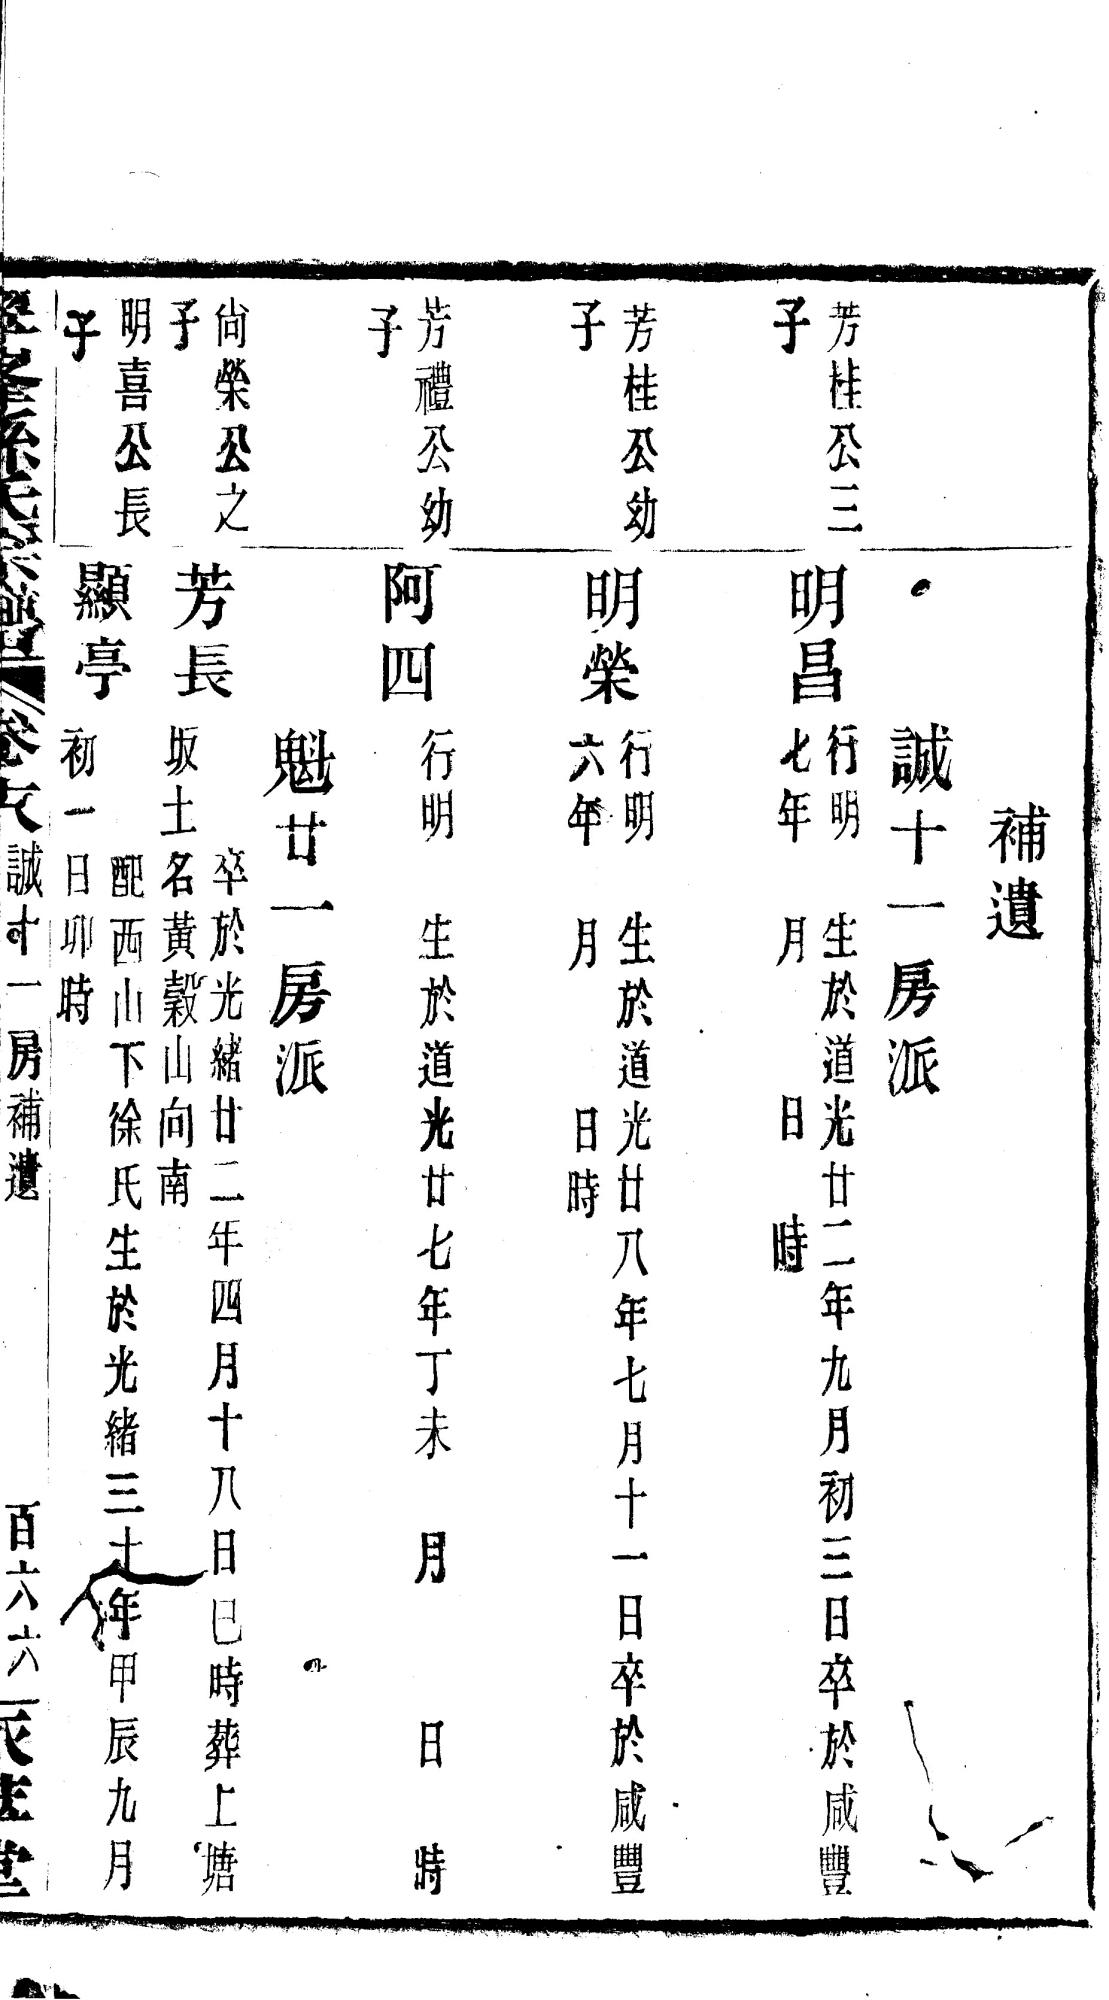 補遺
誠十一房派
芳桂公三
子
明昌
行明 生於道光廿二年九月初三日卒於咸豐
七年 月 日 時
芳桂公幼
子
明榮
行明 生於道光廿八年七月十一日卒於咸豐
六年 月 日時
芳禮公幼
子
阿四
行明 生於道光廿七年丁未 月 日 時
魁廿一房派
尙榮公之
子
芳長
卒於光緒廿二年四月十八日巳時葬上塘
坂土名黃榖山向南
明喜公長
子
顯亭
配西山下徐氏生於光緒三十年甲辰九月
初一日卯時
孫氏宗譜 卷 誠十一房補遺 百六六 堂